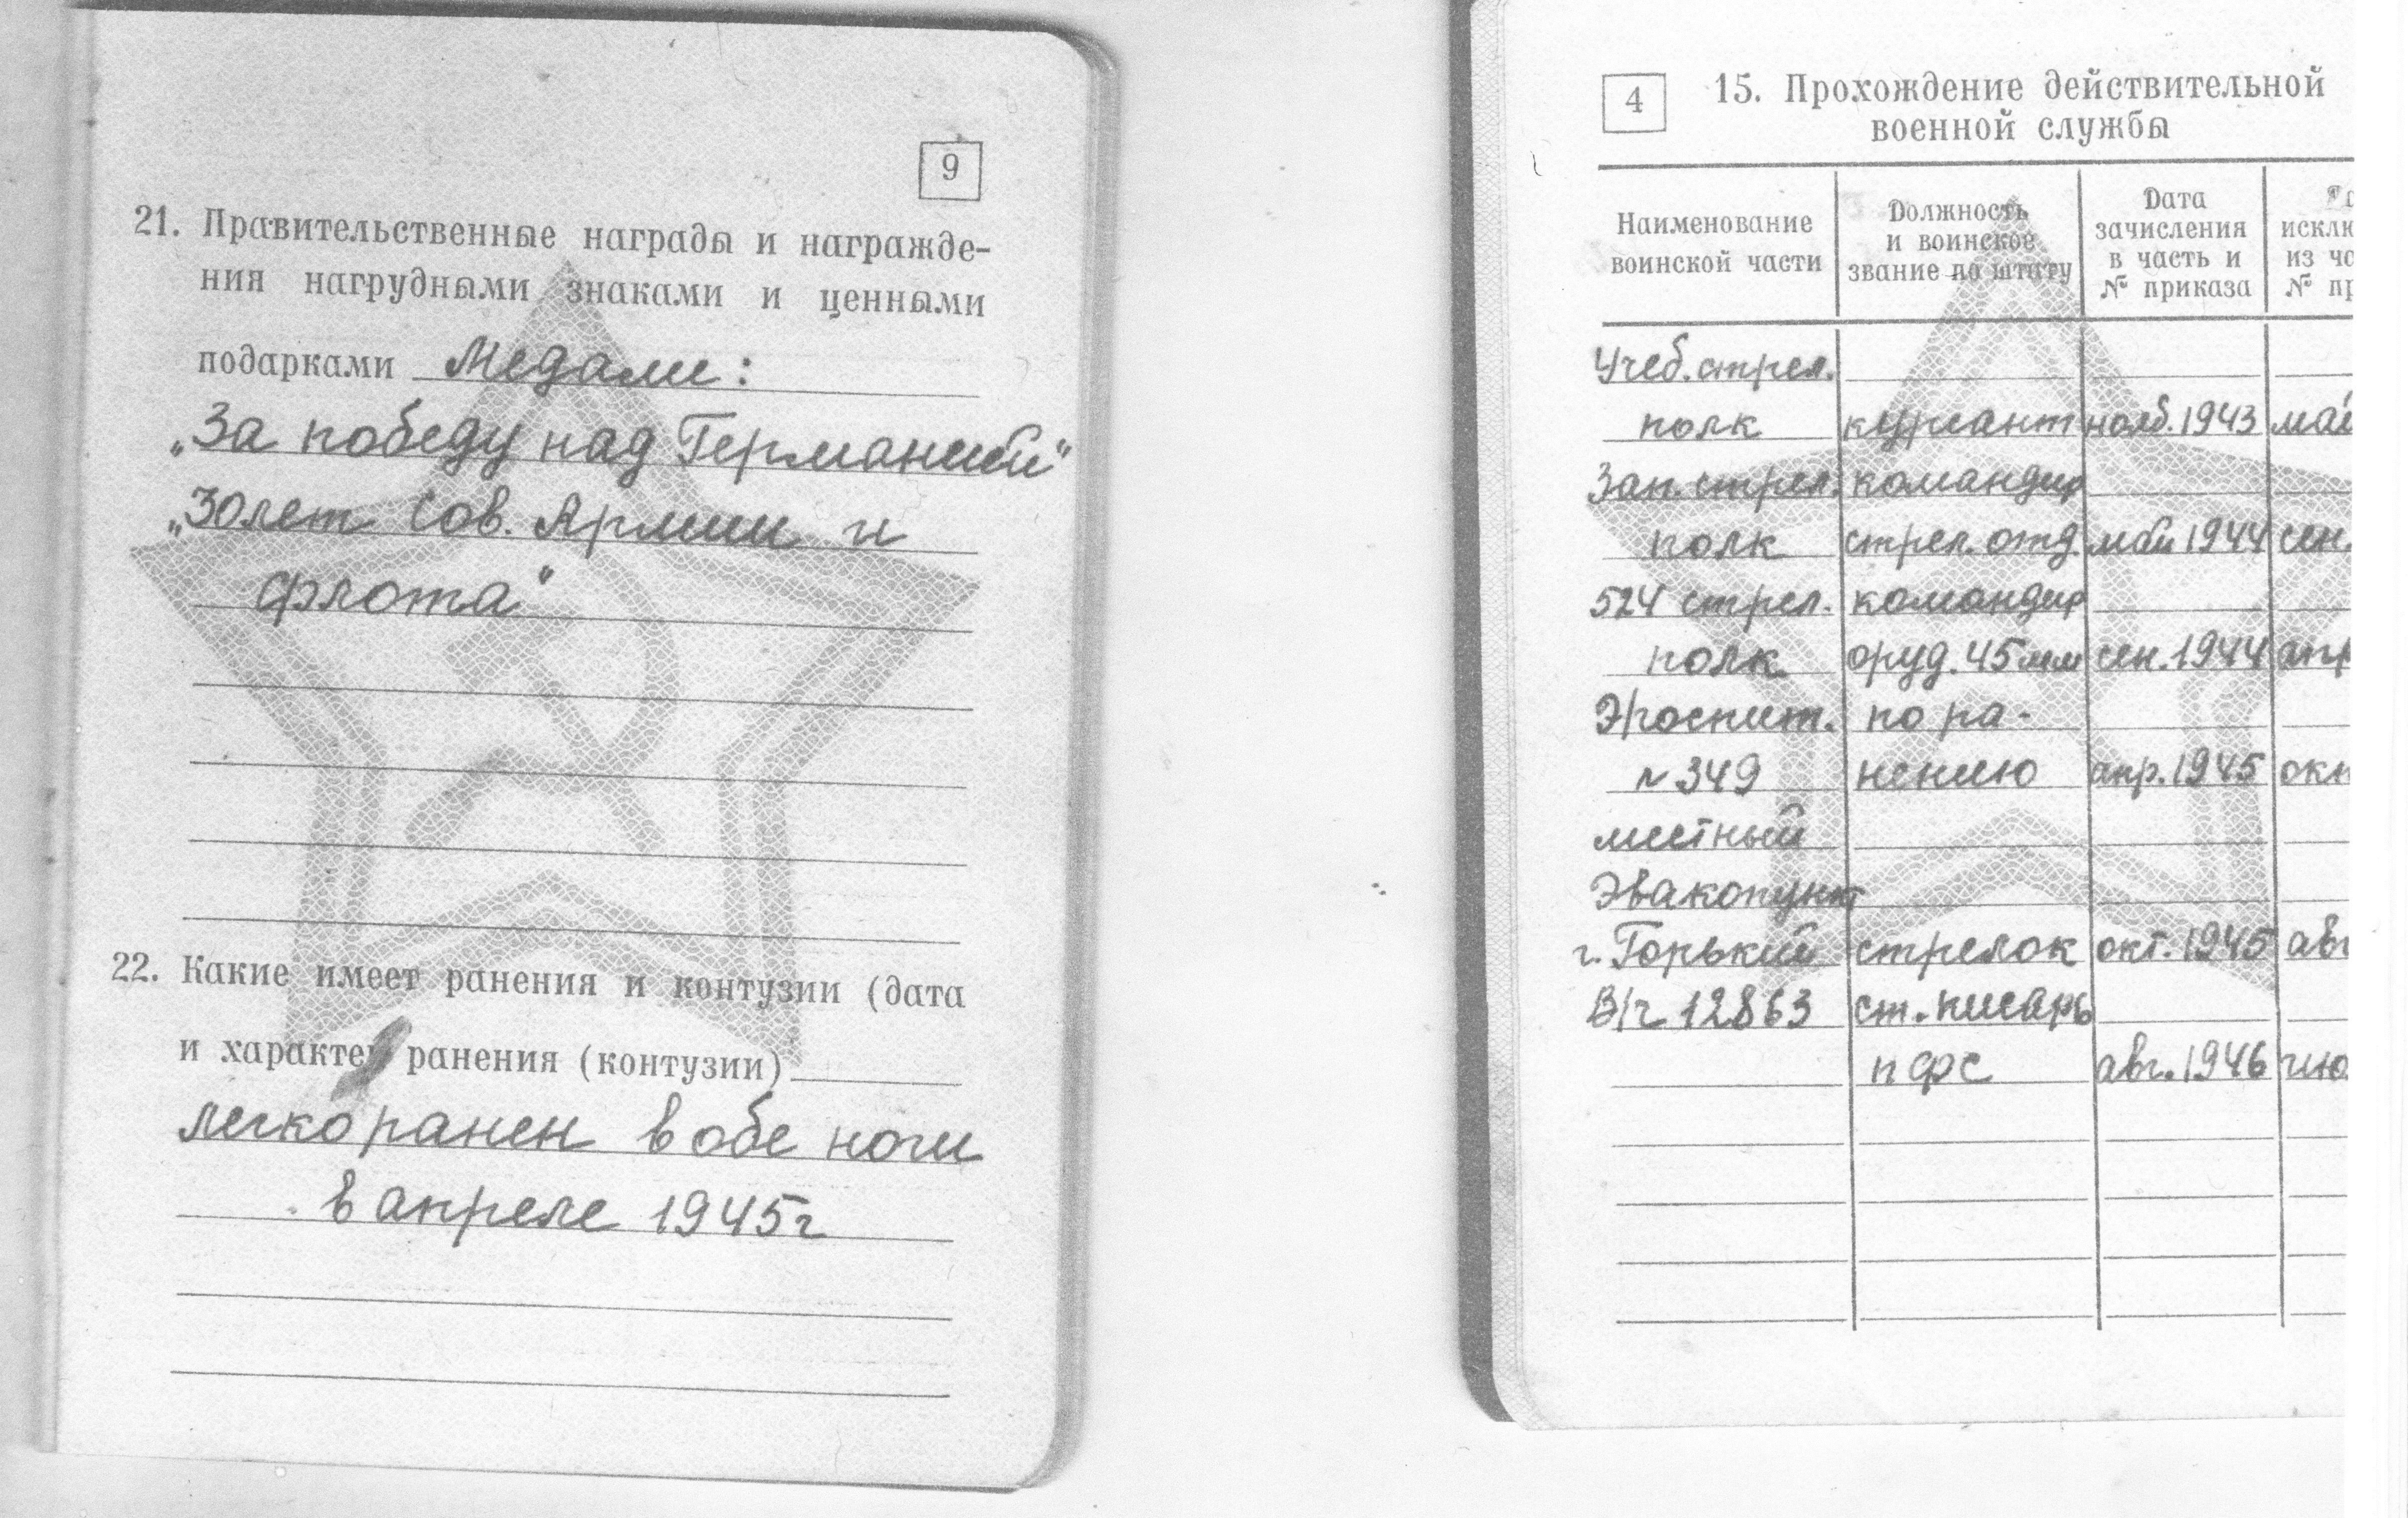 9
21. Правительственные награды и награжде-
ния нагрудными знаками и ценными
подарками Медали:
„За победу над Германией"
„30 лет Сов. Армии и
флота"
22. Какие имеет ранения и контузии (дата
и характер ранения (контузии)
легко ранен в обе ноги
в апреле 1945г
4
15. Прохождение действительной
военной службы
Наименование
воинской части
Должность
и воинское
звание по штату
Дата
зачисления
в часть и
№ приказа
исклю
из ча
№ пр
Учеб. стрел.
полк курсант нояб. 1943 май
Зап. стрел. командир
полк стрел. отд. май 1944 сен.
524 стрел. командир
полк оруд. 45 мм сен. 1944 апр
Эгоспит. по ра-
№ 349 нению апр. 1945 окт
местный
Эвакопункт
г. Горький стрелок окт. 1945 авг
В/ч 12863 ст. писарь
ПФС авг. 1946 ию